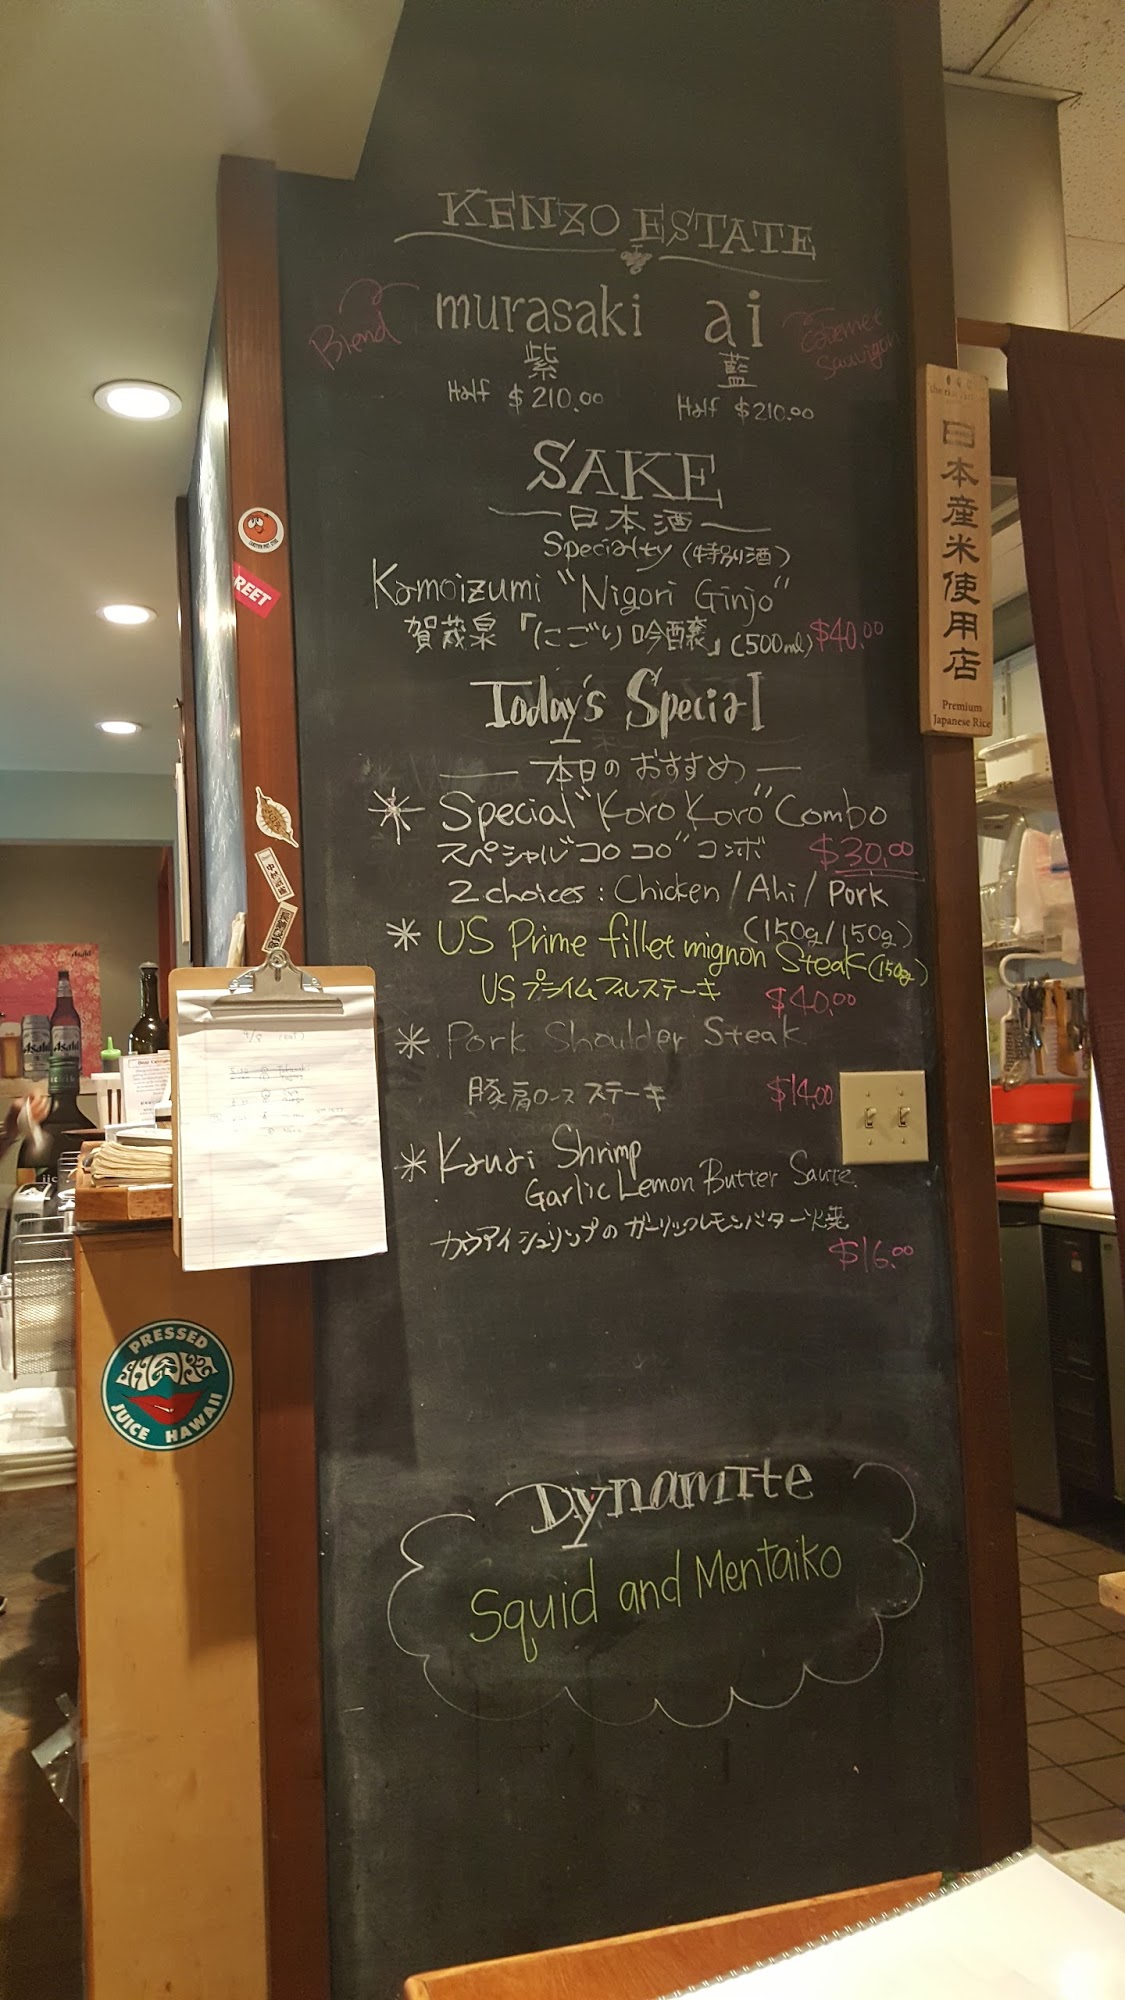 KENZO ESTATE
Blend
murasaki
紫
Half $210.00
ai
藍
Half $210.00
Cabernet
Sauvignon
SAKE
日本酒
Specialty (特別酒)
Kamoizumi "Nigori Ginjo"
賀茂泉「にごり吟醸」(500ml) $40.00
Today's Special
本日のおすすめ
Special "Koro Koro" Combo
スペシャル"コロコロ"コンボ $30.00
2 choices : Chicken / Ahi / Pork
(150g/150g)
US Prime fillet mignon Steak (150g)
US プライムフィレステーキ $40.00
Pork Shoulder Steak
豚肩ロースステーキ $14.00
Kauai Shrimp
Garlic Lemon Butter Saute
カウアイシュリンプのガーリックレモンバター焼
$16.00
Dynamite
Squid and Mentaiko
日本産米使用店
Premium
Japanese Rice
REET
PRESSED
SHAKA
JUICE HAWAII
Asahi
Asahi
Asahi